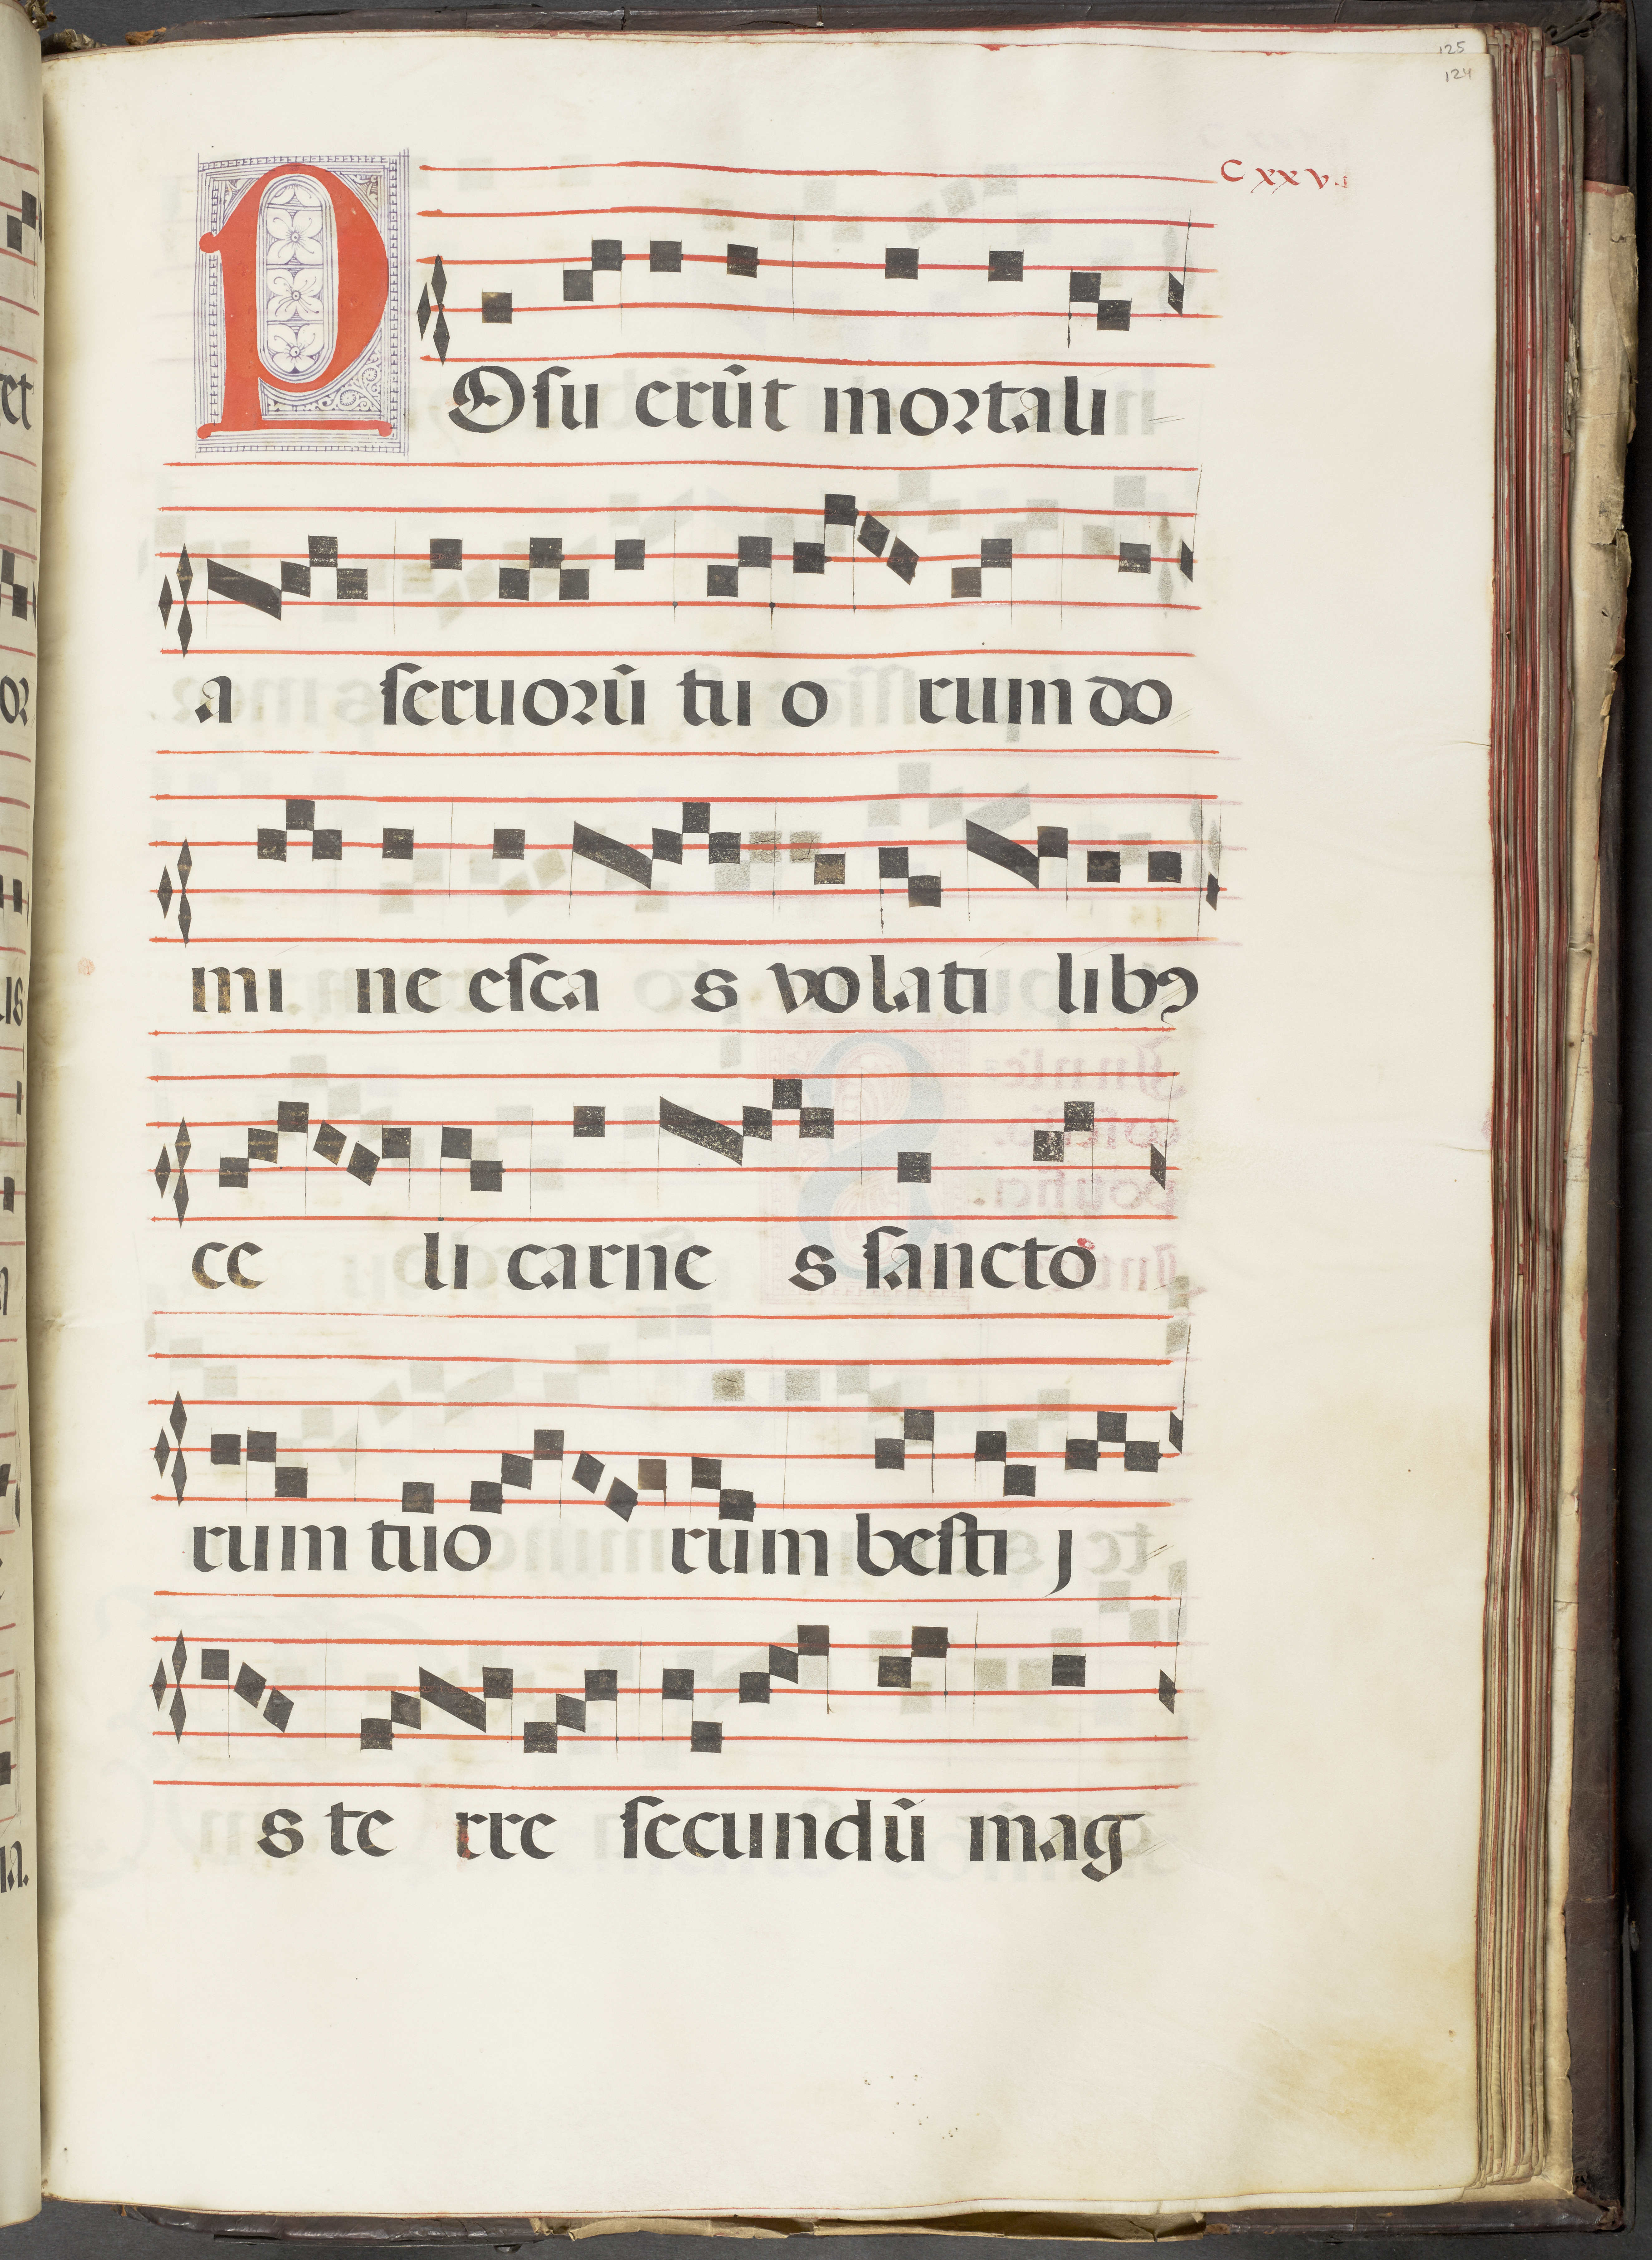 125
124
C xxv.
POsu erūt mortali
a seruorū tu o rum do
mi ne esca s volati libꝰ
ce li carne s sancto
rum tuo rum besti j
s te rre secundū mag